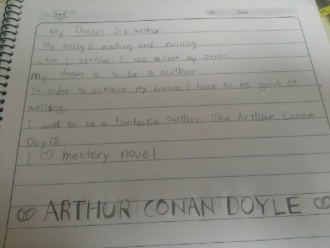 My Dream is a writer
My hobby is reading and running
when I exercise I can relieve my stress
My dream is to be a author.
In order to achieve my dream I have to be good at
writing.
I want to be a fantastic author like Arthur Conan
Doyle.
I ♡ mestery novel
♡ ARTHUR CONAN DOYLE ♡